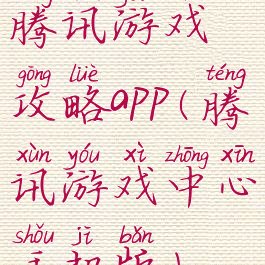 腾讯游戏
gōng lüè téng
攻略app(腾
xùn yóu xì zhōng xīn
讯游戏中心
shǒu jī bǎn
手机版)